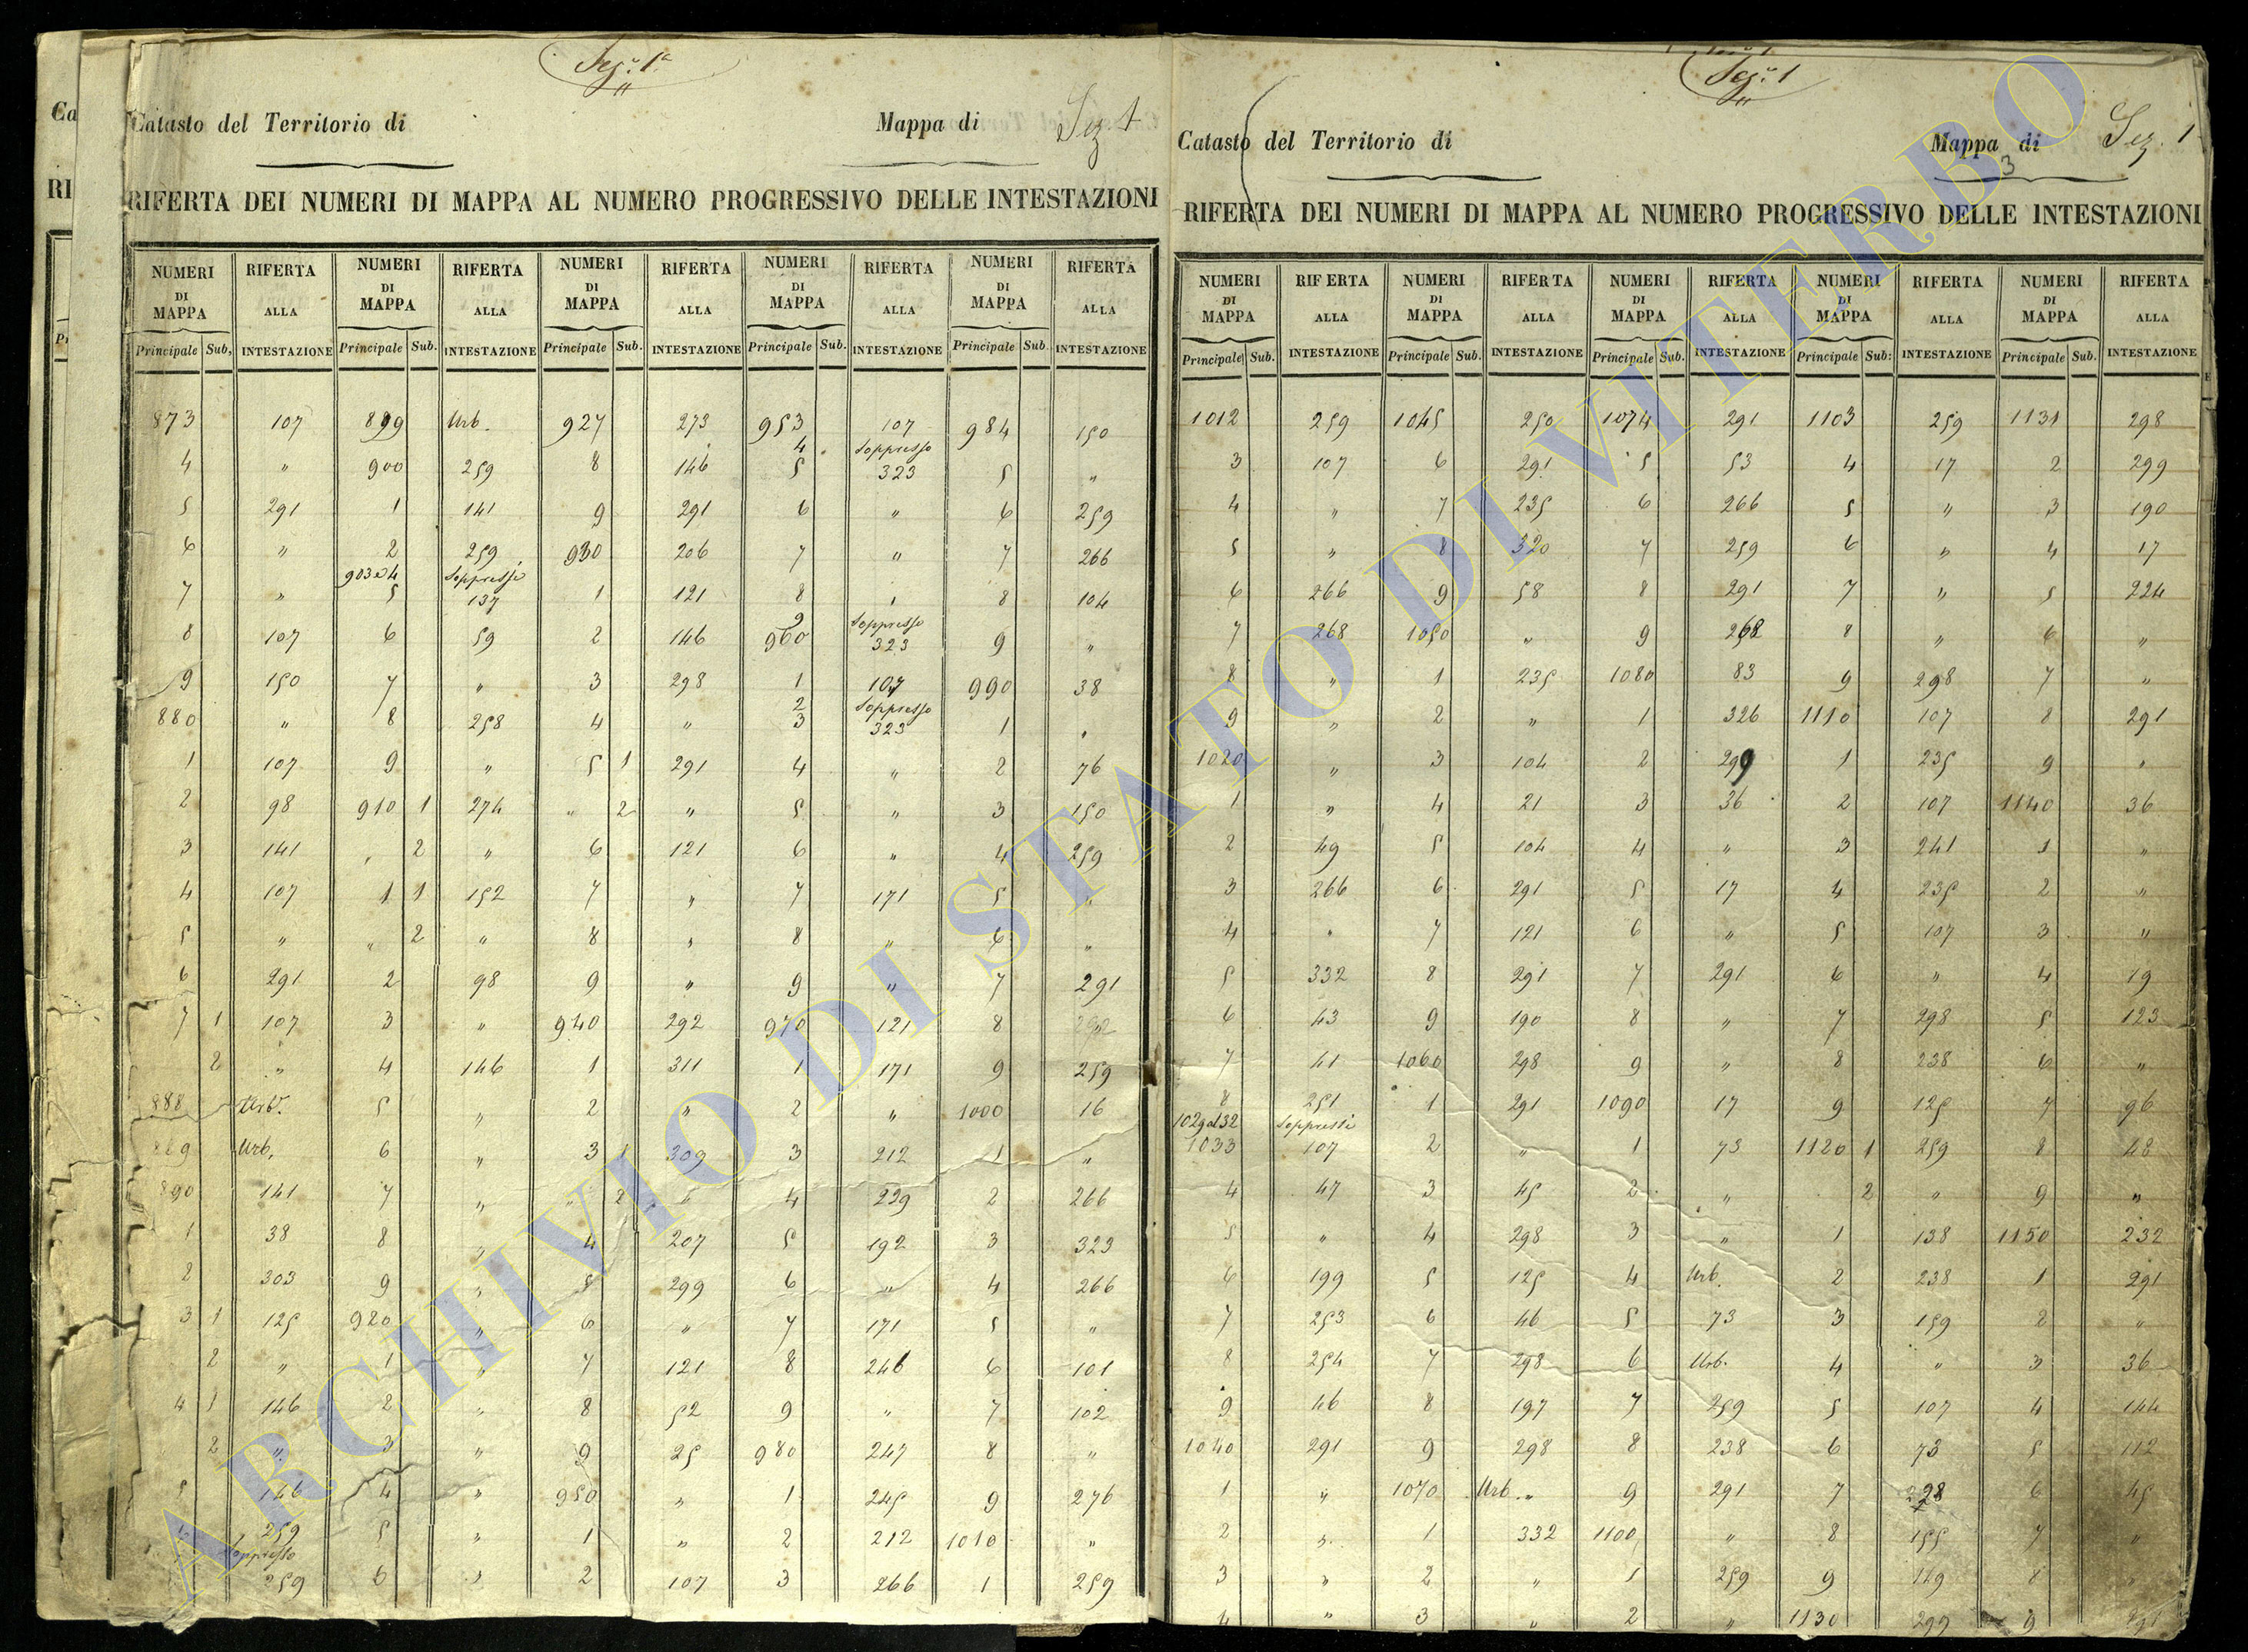 Seg.e 1.a
Catasto del Territorio di
Mappa di Sez. 1
RIFERTA DEI NUMERI DI MAPPA AL NUMERO PROGRESSIVO DELLE INTESTAZIONI
NUMERI DI MAPPA RIFERTA ALLA NUMERI DI MAPPA RIFERTA ALLA NUMERI DI MAPPA RIFERTA ALLA NUMERI DI MAPPA RIFERTA ALLA NUMERI DI MAPPA RIFERTA ALLA
Principale Sub. INTESTAZIONE Principale Sub. INTESTAZIONE Principale Sub. INTESTAZIONE Principale Sub. INTESTAZIONE Principale Sub. INTESTAZIONE
873 107 899 Urb. 927 273 953 107 984 150
4 Soppresso
4 " 900 259 8 146 5 323 5 "
5 291 1 141 9 291 6 " 6 259
6 " 2 259 930 206 7 " 7 266
903 e 4 Soppressi
7 " 5 137 1 121 8 " 8 104
9 Soppresso
8 107 6 59 2 146 960 323 9 "
9 150 7 " 3 298 1 107 990 38
2 Soppresso
880 " 8 258 4 " 3 323 1 "
1 107 9 " 5 1 291 4 " 2 76
2 98 910 1 274 " 2 " 5 " 3 150
3 141 " 2 " 6 121 6 " 4 259
4 107 1 1 152 7 " 7 171 5 "
5 " " 2 " 8 " 8 " 6 "
6 291 2 98 9 " 9 " 7 291
7 1 107 3 " 940 292 970 121 8
2 " 4 146 1 311 1 171 9 259
888 Urb. 5 " 2 " 2 " 1000 16
889 Urb. 6 " 3 1 309 3 212 1 "
890 141 7 " " 2 " 4 229 2 266
1 38 8 " 4 207 5 192 3 323
2 303 9 " 5 299 6 " 4 266
3 1 125 920 " 6 " 7 171 5 "
2 " 1 " 7 121 8 246 6 101
4 1 146 2 " 8 52 9 " 7 102
2 " 3 " 9 25 980 247 8 "
5 146 4 " 950 " 1 245 9 276
259 5 " 1 " 2 212 1010 "
Soppresso
259 6 " 2 107 3 266 1 259
Seg.e 1
Catasto del Territorio di
Mappa di Sez. 1
3
RIFERTA DEI NUMERI DI MAPPA AL NUMERO PROGRESSIVO DELLE INTESTAZIONI
NUMERI DI MAPPA RIFERTA ALLA NUMERI DI MAPPA RIFERTA ALLA NUMERI DI MAPPA RIFERTA ALLA NUMERI DI MAPPA RIFERTA ALLA NUMERI DI MAPPA RIFERTA ALLA
Principale Sub. INTESTAZIONE Principale Sub. INTESTAZIONE Principale Sub. INTESTAZIONE Principale Sub: INTESTAZIONE Principale Sub. INTESTAZIONE
1012 259 1045 250 1074 291 1103 259 1131 298
3 107 6 291 5 53 4 17 2 299
4 " 7 235 6 266 5 " 3 190
5 " 8 320 7 259 6 " 4 17
6 266 9 58 8 291 7 " 5 224
7 268 1050 " 9 268 8 " 6 "
8 " 1 235 1080 83 9 298 7 "
9 " 2 " 1 326 1110 107 8 291
1020 " 3 104 2 299 1 235 9 "
1 " 4 21 3 36 2 107 1140 36
2 49 5 104 4 " 3 241 1 "
3 266 6 291 5 17 4 235 2 "
4 " 7 121 6 " 5 107 3 "
5 332 8 291 7 291 6 " 4 19
6 43 9 190 8 " 7 298 5 123
7 41 1060 298 9 " 8 238 6 "
8 251 1 291 1090 17 9 125 7 96
1029 al 32 Soppressi
1033 107 2 " 1 73 1120 1 259 8 48
4 47 3 45 2 " 2 " 9 "
5 " 4 298 3 " 1 138 1150 232
6 199 5 125 4 Urb. 2 238 1 291
7 253 6 46 5 73 3 159 2 "
8 254 7 298 6 Urb. 4 " 3 36
9 46 8 197 7 259 5 107 4 144
1040 291 9 298 8 238 6 73 5 112
1 " 1070 Urb. " 9 291 7 228 6 45
2 " 1 332 1100 " 8 155 7 "
3 " 2 " 1 259 9 119 8 "
4 " 3 " 2 " 1130 299 9 291
ARCHIVIO DI STATO DI VITERBO